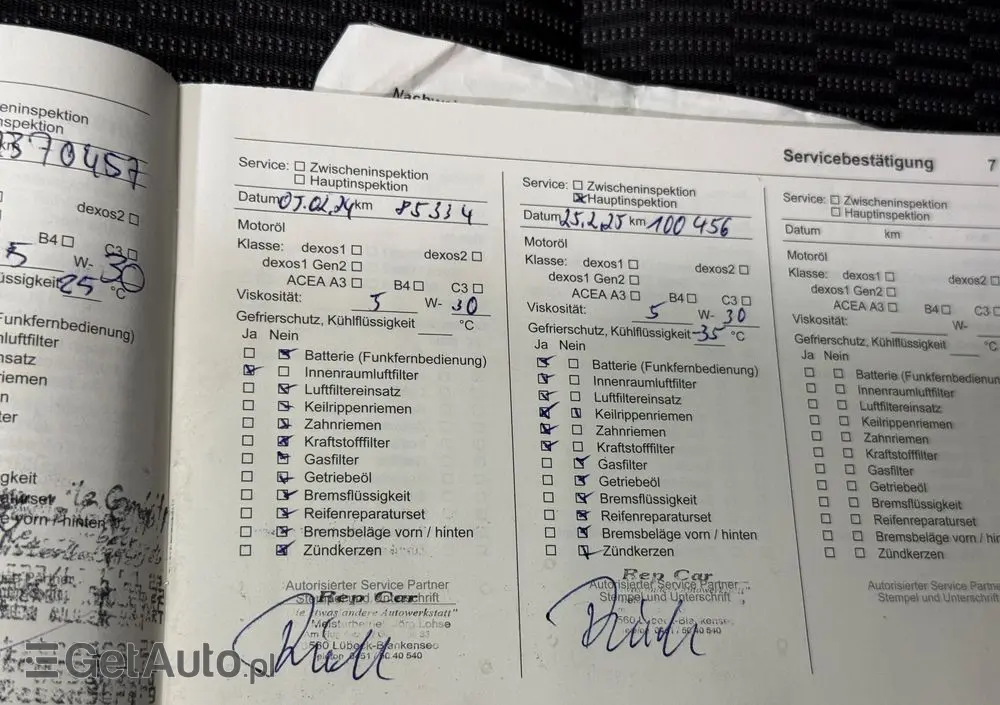 Servicebestätigung 7
eninspektion
nspektion
km 70457
dexos2
B4
C3
5 W- 30
üssigkeit 25 °C
Funkfernbedienung)
nluftfilter
nsatz
iemen
n
ter
gkeit
e vorn / hinten
Service: Zwischeninspektion
Hauptinspektion
Datum 05.02.24 km 85334
Motoröl
Klasse: dexos1 dexos2
dexos1 Gen2
ACEA A3 B4 C3
Viskosität: 5 W- 30
Gefrierschutz, Kühlflüssigkeit °C
Ja Nein
Batterie (Funkfernbedienung)
Innenraumluftfilter
Luftfiltereinsatz
Keilrippenriemen
Zahnriemen
Kraftstofffilter
Gasfilter
Getriebeöl
Bremsflüssigkeit
Reifenreparaturset
Bremsbeläge vorn / hinten
Zündkerzen
Autorisierter Service Partner
Stempel und Unterschrift
Rep Car
Lübeck-Blankensee
Service: Zwischeninspektion
Hauptinspektion
Datum 25.2.25 km 100 456
Motoröl
Klasse: dexos1 dexos2
dexos1 Gen2
ACEA A3 B4 C3
Viskosität: 5 W- 30
Gefrierschutz, Kühlflüssigkeit -35 °C
Ja Nein
Batterie (Funkfernbedienung)
Innenraumluftfilter
Luftfiltereinsatz
Keilrippenriemen
Zahnriemen
Kraftstofffilter
Gasfilter
Getriebeöl
Bremsflüssigkeit
Reifenreparaturset
Bremsbeläge vorn / hinten
Zündkerzen
Rep Car
Autorisierter Service Partner
Stempel und Unterschrift
Service: Zwischeninspektion
Hauptinspektion
Datum km
Motoröl
Klasse: dexos1 dexos2
dexos1 Gen2
ACEA A3 B4 C3
Viskosität: W-
Gefrierschutz, Kühlflüssigkeit °C
Ja Nein
Batterie (Funkfernbedienun
Innenraumluftfilter
Luftfiltereinsatz
Keilrippenriemen
Zahnriemen
Kraftstofffilter
Gasfilter
Getriebeöl
Bremsflüssigkeit
Reifenreparaturset
Bremsbeläge vorn / hin
Zündkerzen
Autorisierter Service Partne
Stempel und Unterschrift
GetAuto.pl